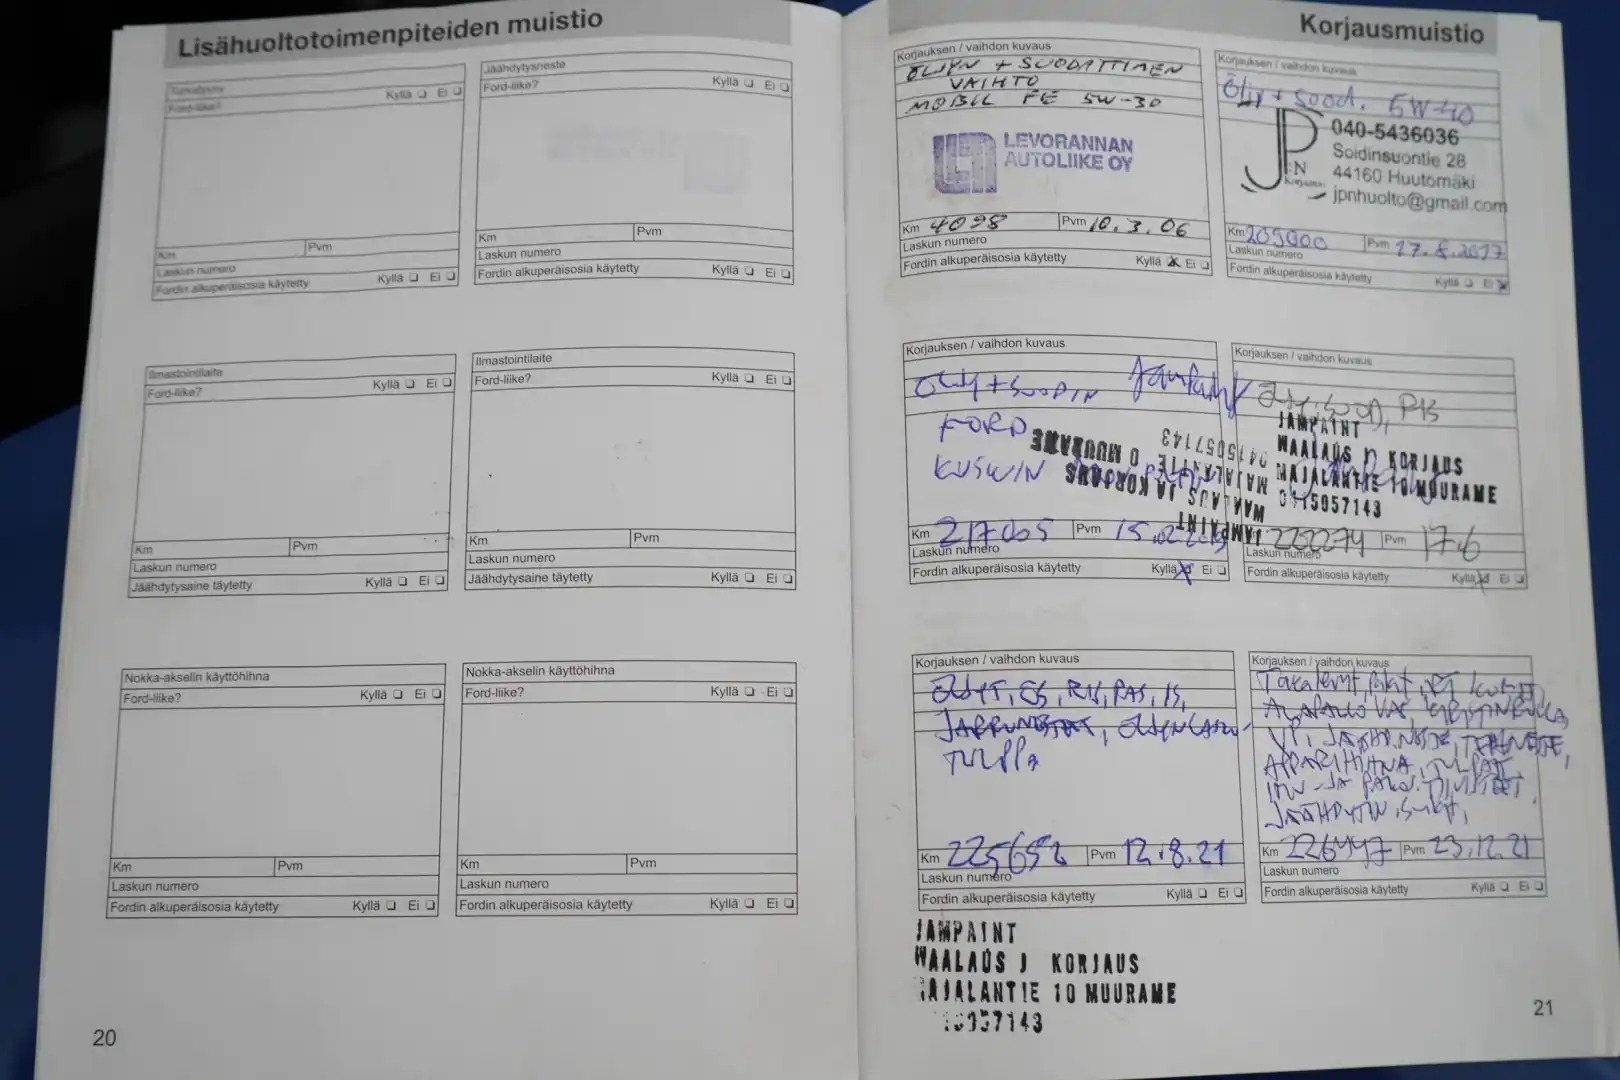 Lisähuoltotoimenpiteiden muistio
Ford-liike? Kyllä ❏ Ei ❏
Km Pvm
Laskun numero
Fordin alkuperäisosia käytetty Kyllä ❏ Ei ❏
Jäähdytysneste
Ford-liike? Kyllä ❏ Ei ❏
Km Pvm
Laskun numero
Fordin alkuperäisosia käytetty Kyllä ❏ Ei ❏
Ilmastointilaite
Ford-liike? Kyllä ❏ Ei ❏
Km Pvm
Laskun numero
Jäähdytysaine täytetty Kyllä ❏ Ei ❏
Ilmastointilaite
Ford-liike? Kyllä ❏ Ei ❏
Km Pvm
Laskun numero
Jäähdytysaine täytetty Kyllä ❏ Ei ❏
Nokka-akselin käyttöhihna
Ford-liike? Kyllä ❏ Ei ❏
Km Pvm
Laskun numero
Fordin alkuperäisosia käytetty Kyllä ❏ Ei ❏
Nokka-akselin käyttöhihna
Ford-liike? Kyllä ❏ Ei ❏
Km Pvm
Laskun numero
Fordin alkuperäisosia käytetty Kyllä ❏ Ei ❏
20
Korjausmuistio
Korjauksen / vaihdon kuvaus
ÖLJYN + SUODATTIMEN
VAIHTO
MOBIL FE 5W-30
LEVORANNAN
AUTOLIIKE OY
Km 4098 Pvm 10.3.06
Laskun numero
Fordin alkuperäisosia käytetty Kyllä ☒ Ei ❏
Korjauksen / vaihdon kuvaus
Öljy + Suod. 5W-40
JP:N
040-5436036
Soidinsuontie 28
44160 Huutomäki
jpnhuolto@gmail.com
Km 209000 Pvm 17.8.2017
Laskun numero
Fordin alkuperäisosia käytetty Kyllä ❏ Ei ☒
Korjauksen / vaihdon kuvaus
ÖLJY + SUODIN Jampaint
FORD
JAMPAINT
MAALAUS JA KORJAUS
MAJALANTIE 10 MUURAME
0415057143
Km 217065 Pvm
Laskun numero
Fordin alkuperäisosia käytetty Kyllä ☒ Ei ❏
Korjauksen / vaihdon kuvaus
JAMPAINT
MAALAUS J KORJAUS
MAJALANTIE 10 MUURAME
0415057143
Pvm 17.6
Laskun numero
Fordin alkuperäisosia käytetty Kyllä ☒ Ei ❏
Korjauksen / vaihdon kuvaus
ÖLJYT, ÖS, RS, PAS, IS,
JARRUNESTE, ÖLJYNLASKU-
TULPPA
Km 225652 Pvm 12.8.21
Laskun numero
Fordin alkuperäisosia käytetty Kyllä ❏ Ei ❏
Korjauksen / vaihdon kuvaus
VP, JÄÄHD.NESTE,
APPARIHIHNA, TULPAT,
IMU- JA PAKO. TIIVISTEET,
Km 226447 Pvm 23.12.21
Laskun numero
Fordin alkuperäisosia käytetty Kyllä ❏ Ei ❏
JAMPAINT
MAALAUS J KORJAUS
AJALANTIE 10 MUURAME
15057143
21